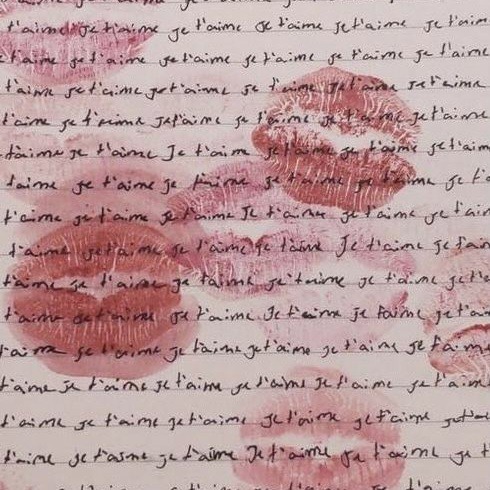 je t'aime je t'aime je t'aime je t'aime
t'aime je t'aime je t'aime Je t'aime je t'aim
t'aime je t'aime je t'aime je t'aime je t'aime
t'aime je t'aime je t'aime je t'aime je t'aime
t'aime je t'aime je t'aime je t'aime je t'aime
t'aime je t'aime Je t'aime je t'aime je t'aim
t'aime je t'aime je t'aime je t'aime je t'
t'aime je t'aime je t'aime Je t'aime je t'aim
t'aime je t'aime je t'aime je t'aime Je t'aime je t'aim
t'aime je t'aime je t'aime je t'aime je t'aime je t'
t'aime je t'aime je t'aime Je t'aime je t'aime je t'
t'aime je t'aime je t'aime je t'aime je t'aime je t'aime
t'aime Je t'aime je t'aime je t'aime je t'aime je t'aim
t'aime je t'aime je t'aime je t'aime je t'aime je t'aim
t'aime je t'aime je t'aime Je t'aime je t'aime je t'aim